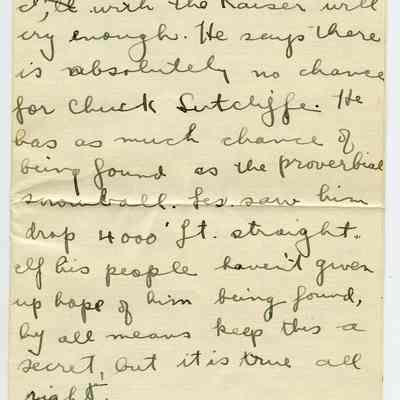 with the Kaiser will
cry enough. He says there
is absolutely no chance
for Chuck Sutcliffe. He
has as much chance of
being found as the proverbial
snowball. Les. saw him
drop 4000' ft. straight.
If his people haven't given
up hope of him being found,
by all means keep this a
secret, but it is true all
right.